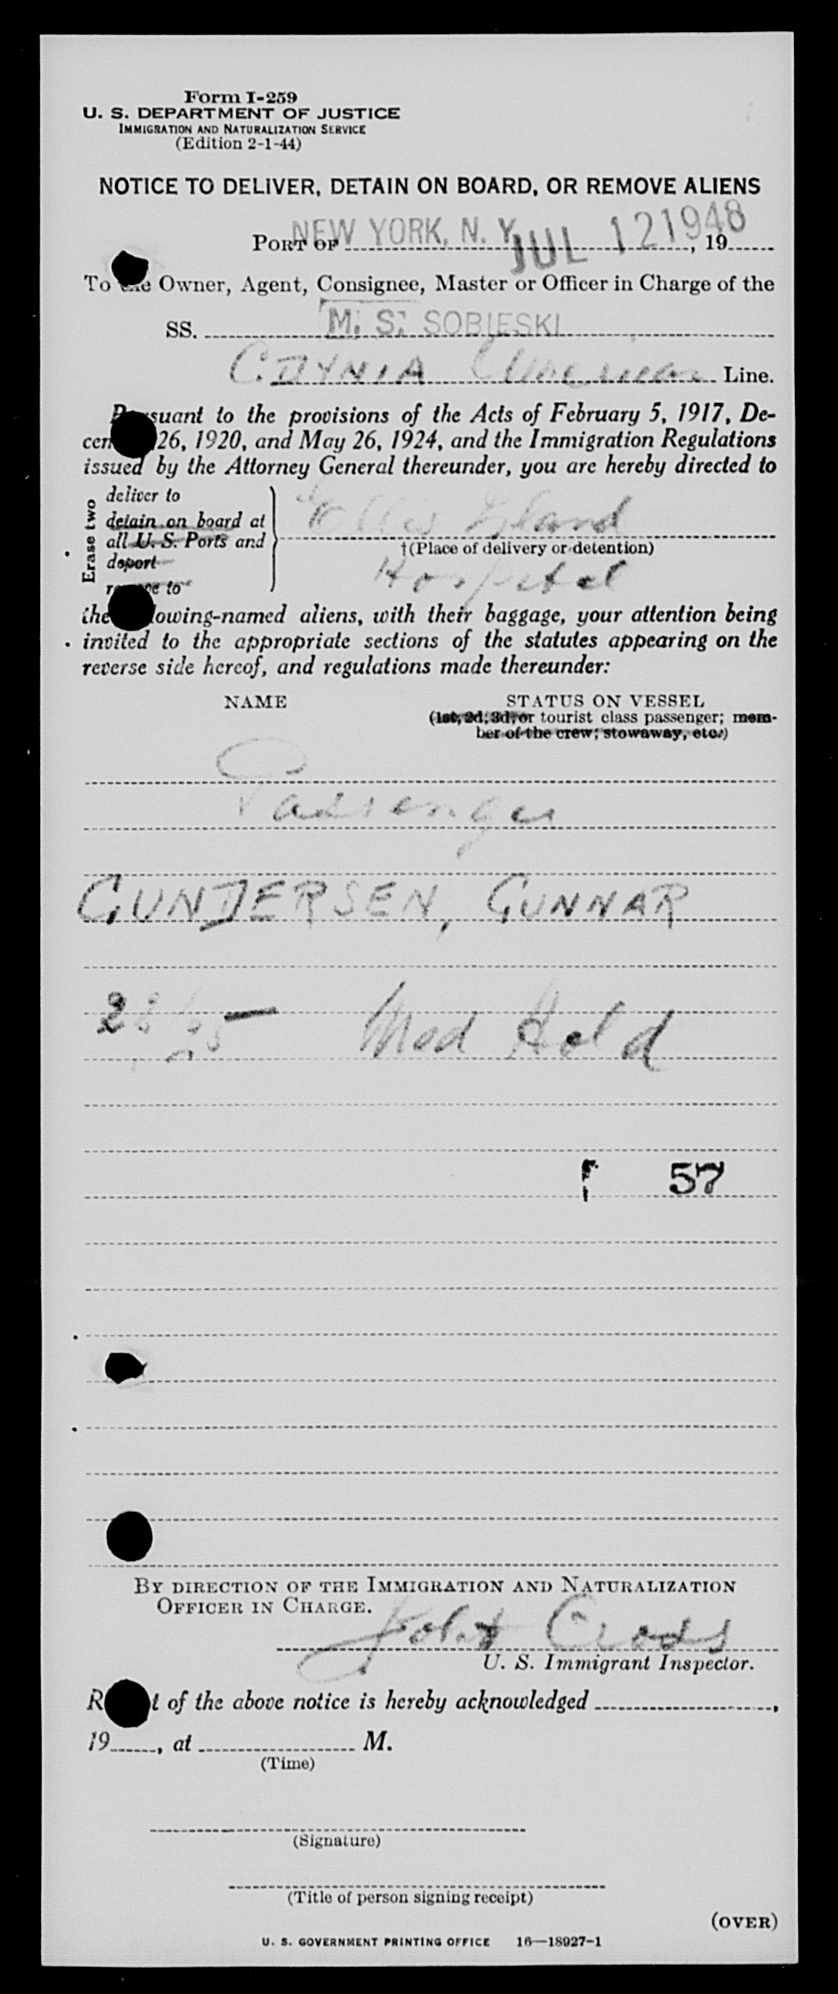 Form I-259
U. S. DEPARTMENT OF JUSTICE
IMMIGRATION AND NATURALIZATION SERVICE
(Edition 2-1-44)
NOTICE TO DELIVER, DETAIN ON BOARD, OR REMOVE ALIENS
PORT OF NEW YORK, N. Y. JUL 12 1948, 19
To the Owner, Agent, Consignee, Master or Officer in Charge of the
SS. M. S. SOBIESKI
GDYNIA American Line.
Pursuant to the provisions of the Acts of February 5, 1917, De-
cem 26, 1920, and May 26, 1924, and the Immigration Regulations
issued by the Attorney General thereunder, you are hereby directed to
Erase two
deliver to
detain on board at
all U. S. Ports and
deport
remove to
Ellis Island
†(Place of delivery or detention)
Hospital
the lowing-named aliens, with their baggage, your attention being
invited to the appropriate sections of the statutes appearing on the
reverse side hereof, and regulations made thereunder:
NAME STATUS ON VESSEL
(1st, 2d, 3d, or tourist class passenger; mem-
ber of the crew; stowaway, etc.)
Passenger
GUNDERSEN, GUNNAR
Med Hold
57
BY DIRECTION OF THE IMMIGRATION AND NATURALIZATION
OFFICER IN CHARGE.
U. S. Immigrant Inspector.
R t of the above notice is hereby acknowledged ,
19 , at M.
(Time)
(Signature)
(Title of person signing receipt)
(OVER)
U. S. GOVERNMENT PRINTING OFFICE 16—18927-1